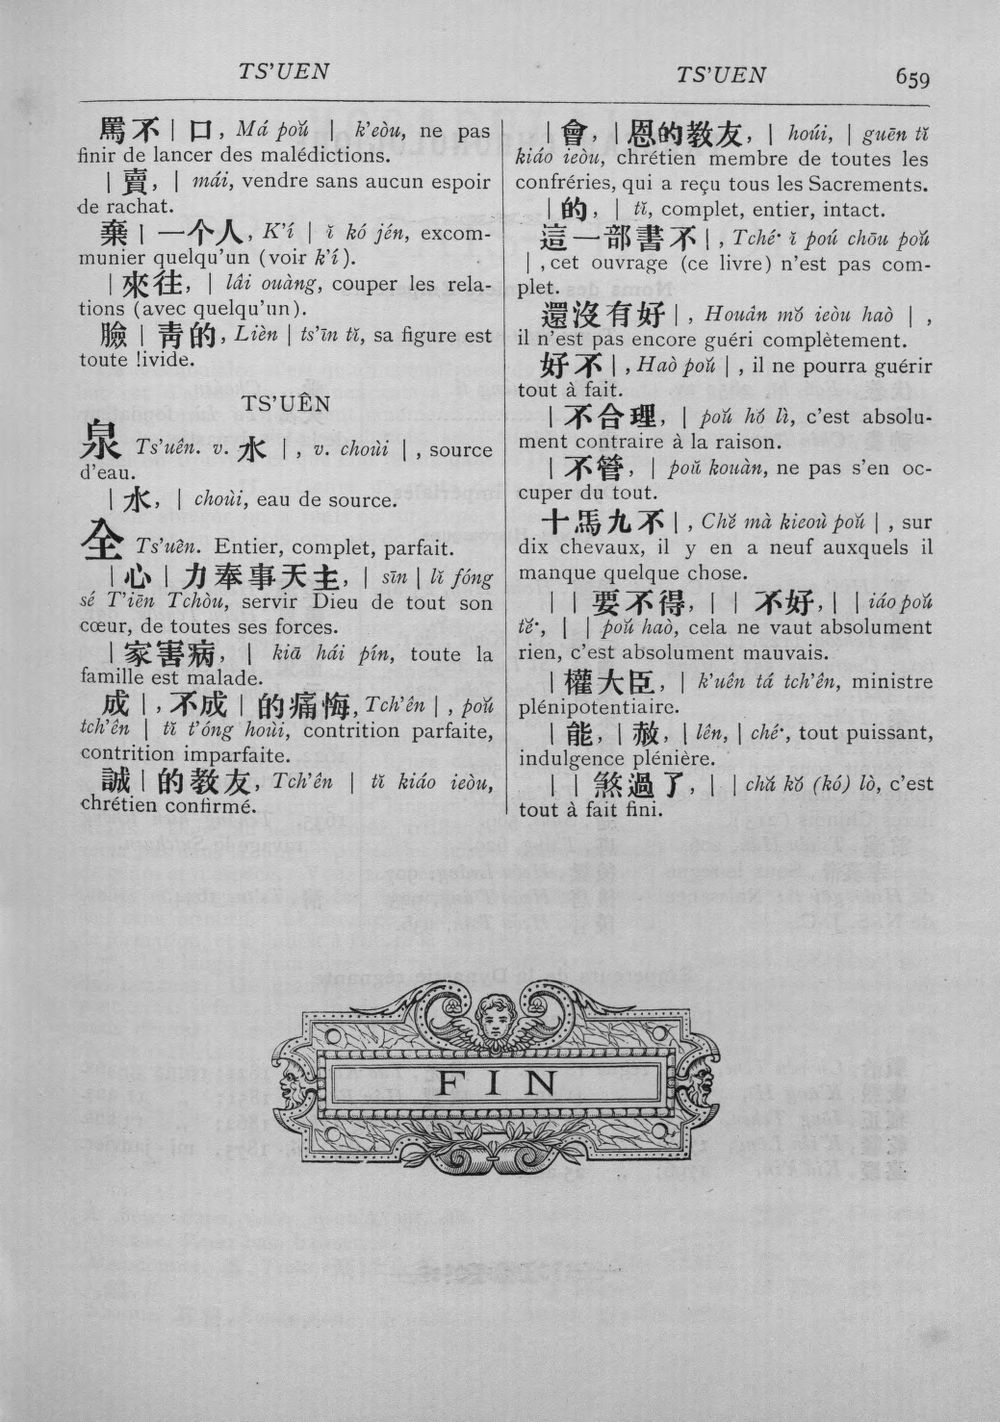 TS'UEN
TS'UEN
659
罵不 | 口, Má poŭ | k'eòu, ne pas
finir de lancer des malédictions.
| 賣, | mái, vendre sans aucun espoir
de rachat.
棄 | 一个人, K'í | ĭ kó jén, excom-
munier quelqu'un (voir k'í).
| 來往, | lâi ouàng, couper les rela-
tions (avec quelqu'un).
臉 | 靑的, Lièn | ts'īn tĭ, sa figure est
toute livide.
TS'UÊN
泉 Ts'uên. v. 水 | , v. choùi | , source
d'eau.
| 水, | choùi, eau de source.
全 Ts'uên. Entier, complet, parfait.
| 心 | 力奉事天主, | sīn | lĭ fóng
sé T'iēn Tchòu, servir Dieu de tout son
cœur, de toutes ses forces.
| 家害病, | kiā hái pín, toute la
famille est malade.
成 | , 不成 | 的痛悔, Tch'ên | , poŭ
tch'ên | tĭ t'óng hoùi, contrition parfaite,
contrition imparfaite.
誠 | 的教友, Tch'ên | tĭ kiáo ieòu,
chrétien confirmé.
| 會, | 恩的教友, | hoúi, | guēn tĭ
kiáo ieòu, chrétien membre de toutes les
confréries, qui a reçu tous les Sacrements.
| 的, | tĭ, complet, entier, intact.
這一部書不 | , Tché· ĭ poú chōu poŭ
| , cet ouvrage (ce livre) n'est pas com-
plet.
還沒有好 | , Houân mŏ ieòu haò | ,
il n'est pas encore guéri complètement.
好不 | , Haò poŭ | , il ne pourra guérir
tout à fait.
| 不合理, | poŭ hŏ lì, c'est absolu-
ment contraire à la raison.
| 不管, | poŭ kouàn, ne pas s'en oc-
cuper du tout.
十馬九不 | , Chĕ mà kieoù poŭ | , sur
dix chevaux, il y en a neuf auxquels il
manque quelque chose.
| | 要不得, | | 不好, | | iáo poŭ
tĕ·, | | poŭ haò, cela ne vaut absolument
rien, c'est absolument mauvais.
| 權大臣, | k'uên tá tch'ên, ministre
plénipotentiaire.
| 能, | 赦, | lên, | ché·, tout puissant,
indulgence plénière.
| | 煞過了, | | chă kŏ (kó) lò, c'est
tout à fait fini.
FIN